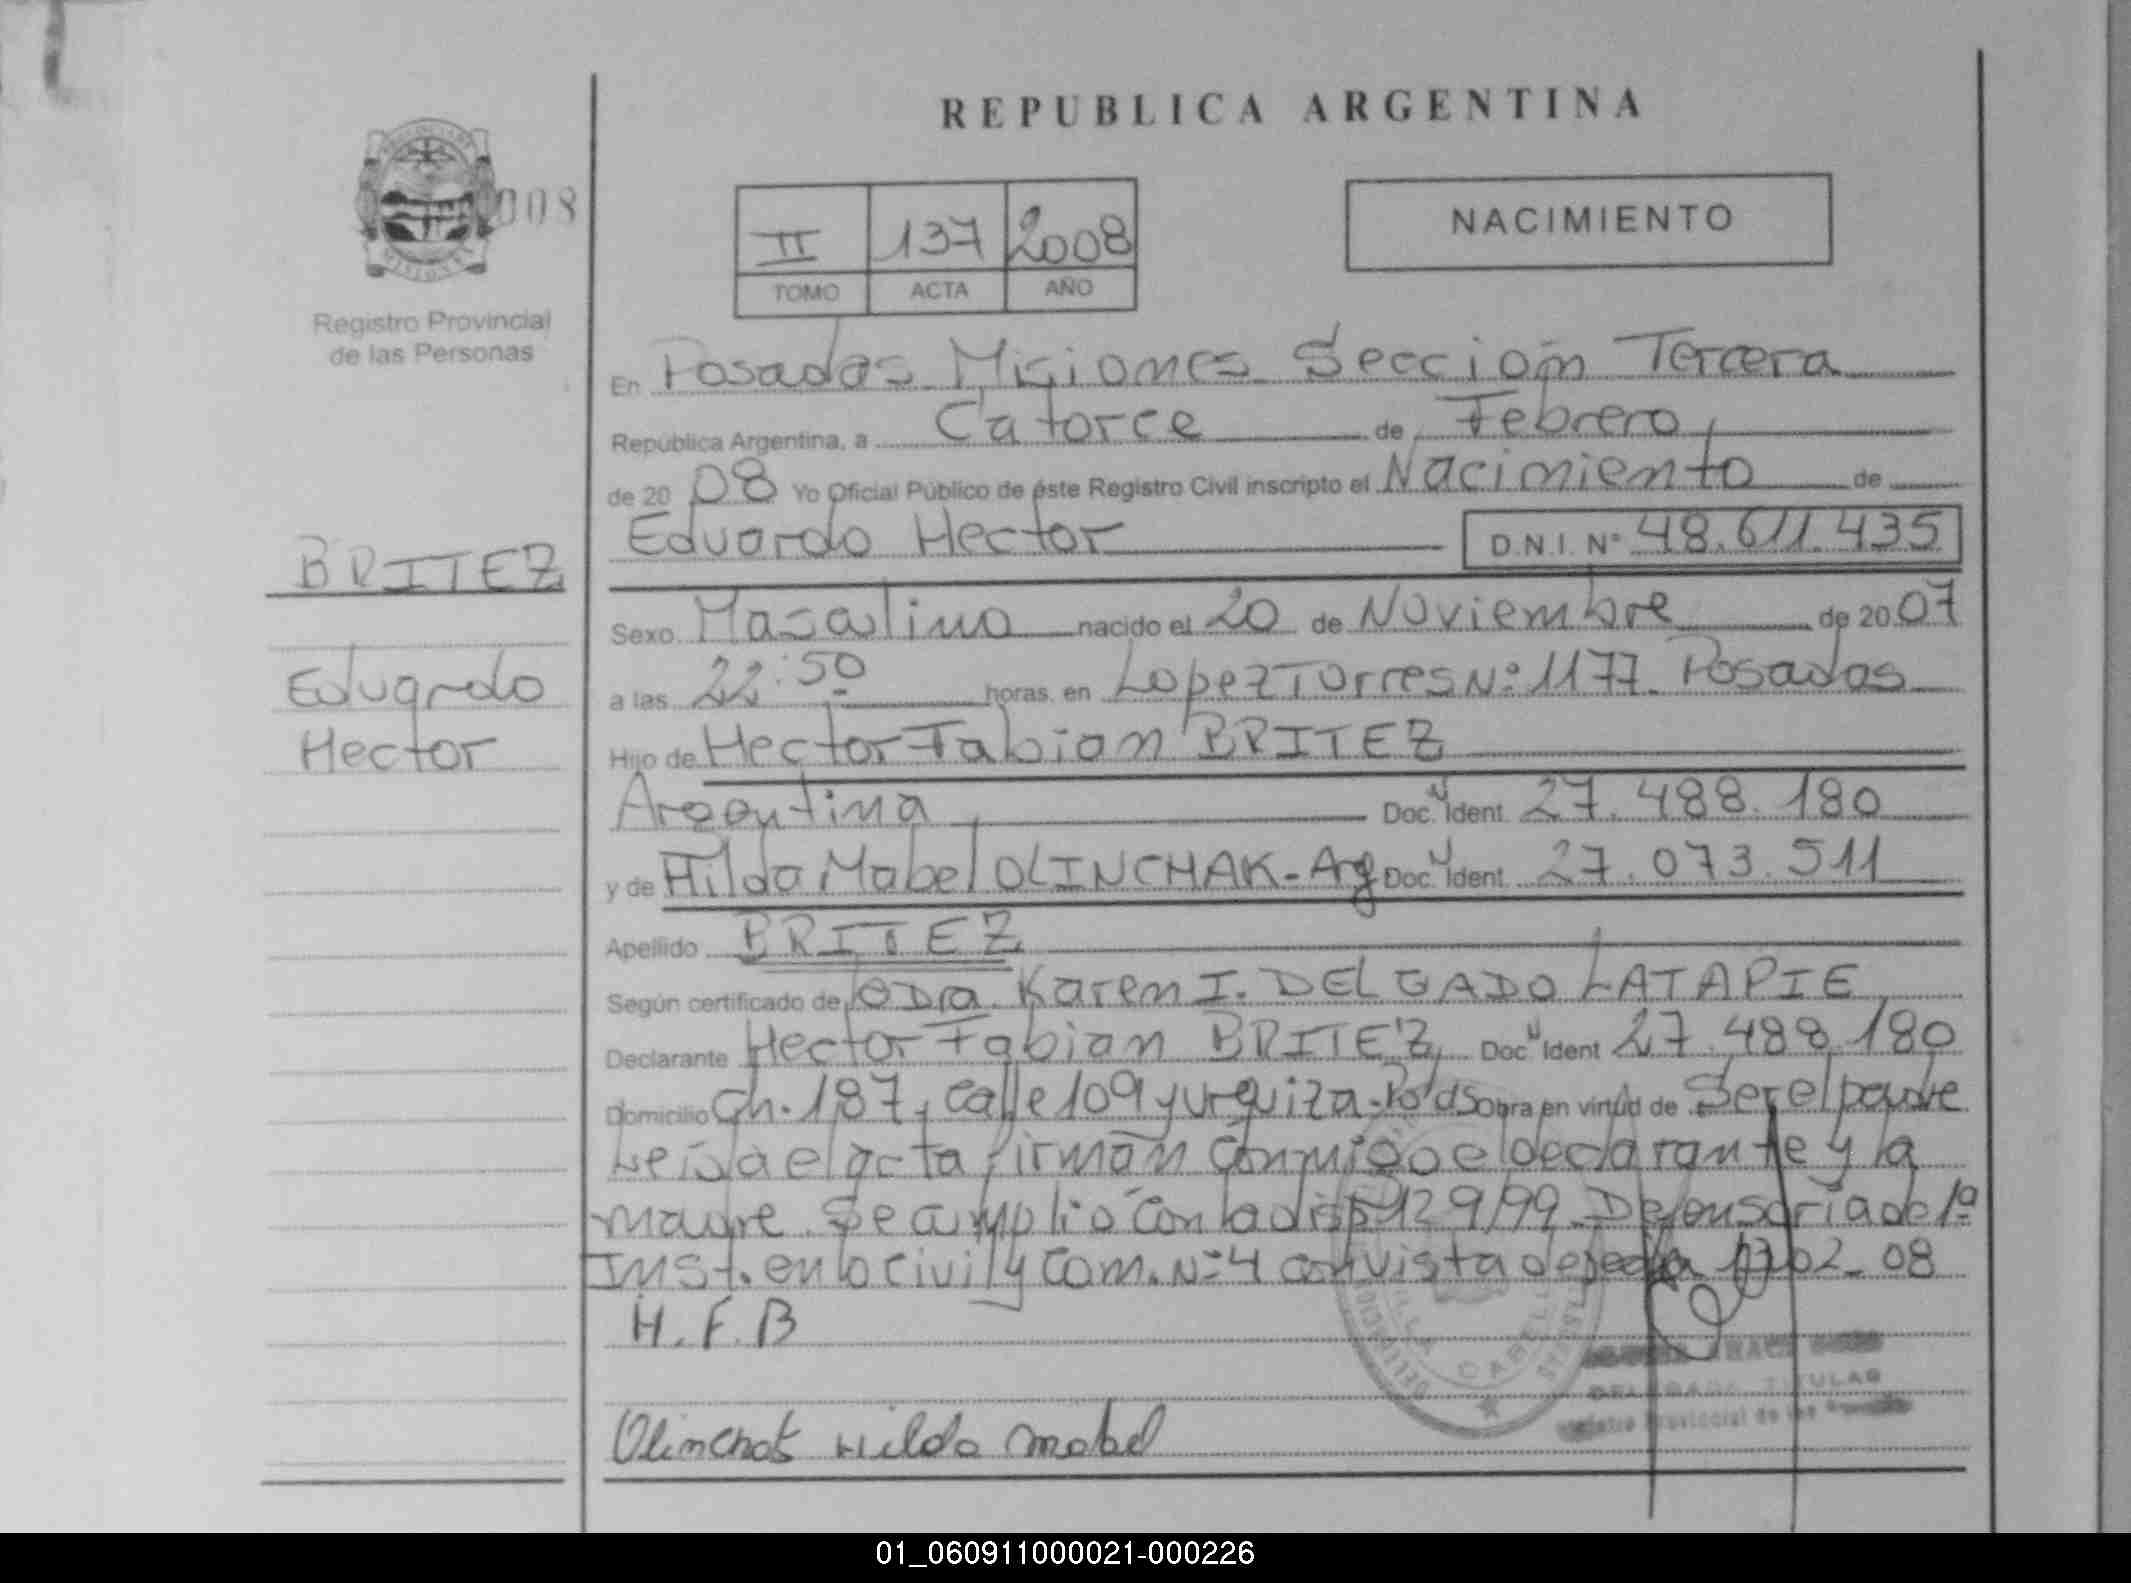 REPUBLICA ARGENTINA
008
MISIONES
Registro Provincial
de las Personas
II 137 2008
TOMO ACTA AÑO
NACIMIENTO
En Posadas Misiones Sección Tercera
República Argentina, a Catorce de Febrero
de 20 08 Yo Oficial Público de éste Registro Civil inscripto el Nacimiento de
Eduardo Hector D.N.I. Nº 48.611.435
BRITEZ
Eduardo
Hector
Sexo Masculino nacido el 20 de Noviembre de 20 07
a las 22:50 horas, en Lopez Torres Nº 1177 Posadas
Hijo de Hector Fabian BRITEZ
Argentina Doc. Ident. 27.488.180
y de Hilda Mabel OLINCHAK - Arg Doc. Ident. 27.073.511
Apellido BRITEZ
Según certificado de Dra. Karem I. DELGADO LATAPIE
Declarante Hector Fabian BRITEZ Doc. Ident 27.488.180
Domicilio Ch. 187, calle 109 y urquiza - Pdas Obra en virtud de Ser el padre
Leída el acta firman conmigo el declarante y la
madre. Se cumplió con la disp 129/99 Defensoria de 1ª
Inst. en lo civil y Com. Nº 4 con vista de fecha 02-08
H.F.B
Olinchak Hilda mabel
TITULAR
Registro Provincial de las
01_060911000021-000226